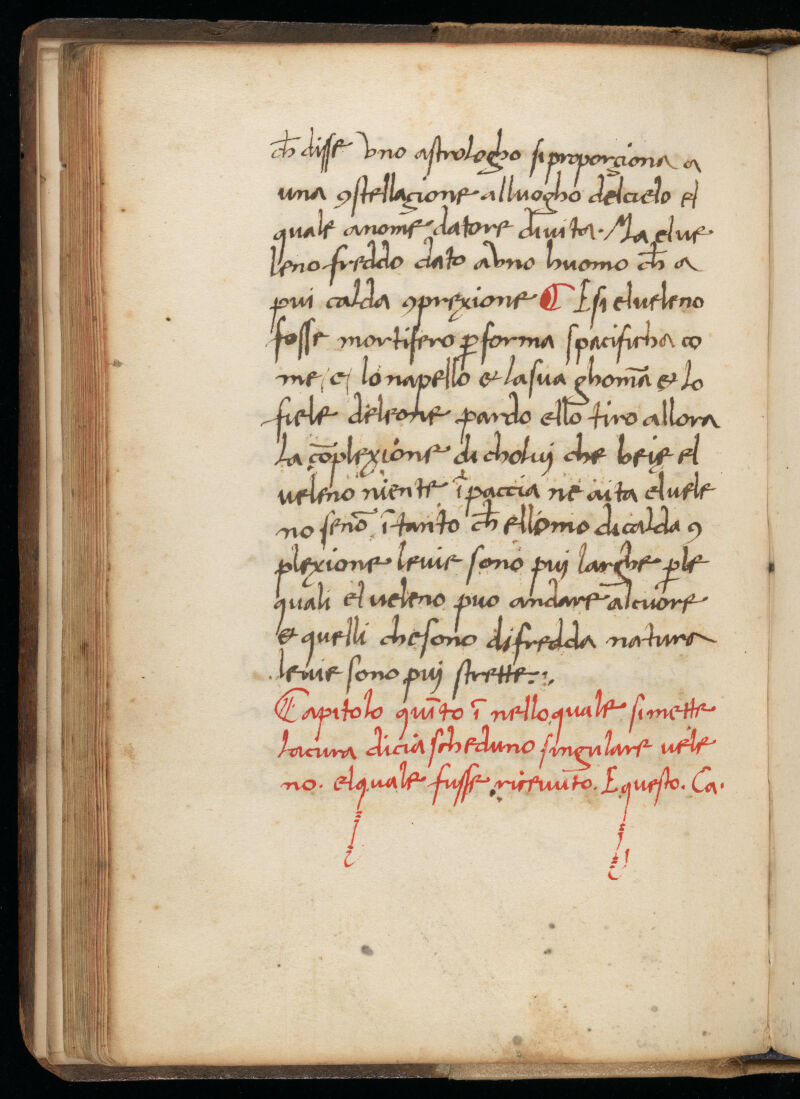 ch̄ disse vno astrologho si proporziona a
una ꝯstellazione alluogho delcielo el
quale anome datore diuita. Ma elue
leno freddo dato avno huomo ch̄ a
pui calda ꝯprexione ¶ E si elueleno
fosse mortifero ꝑ forma spacificha co
me, e, lo napello et lasua ghom̄a et lo
fiele deleone pardo ello tiro allora
la cōplexione di cholui che beie el
ueleno niente īpaccia ne aita eluele
no senō ī tanto ch̄ ellomo dicalda ꝯ
plexione leuie sono pui larghe ꝑ le
quali elueleno puo andare alcuore
et quelli chesono difredda natura
leuie sono pui strette:.,
Capitolo quīto ī nelloquale simette
lacura diciascheduno singulare uele
no. elquale fusse riceuuto. E questo. Ca.